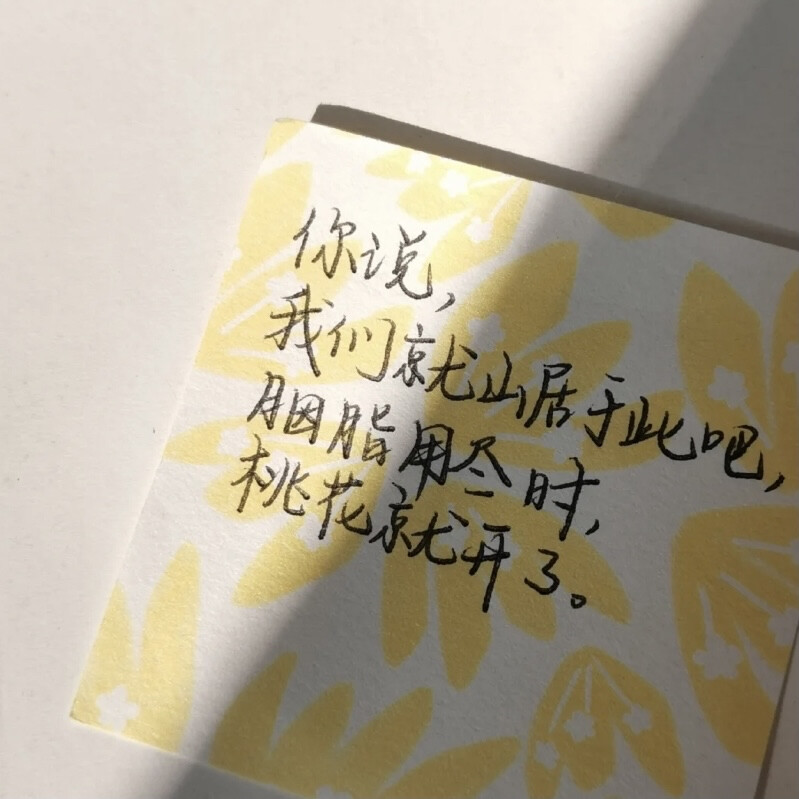 你说,
我们就山居于此吧,
胭脂用尽时,
桃花就开了。